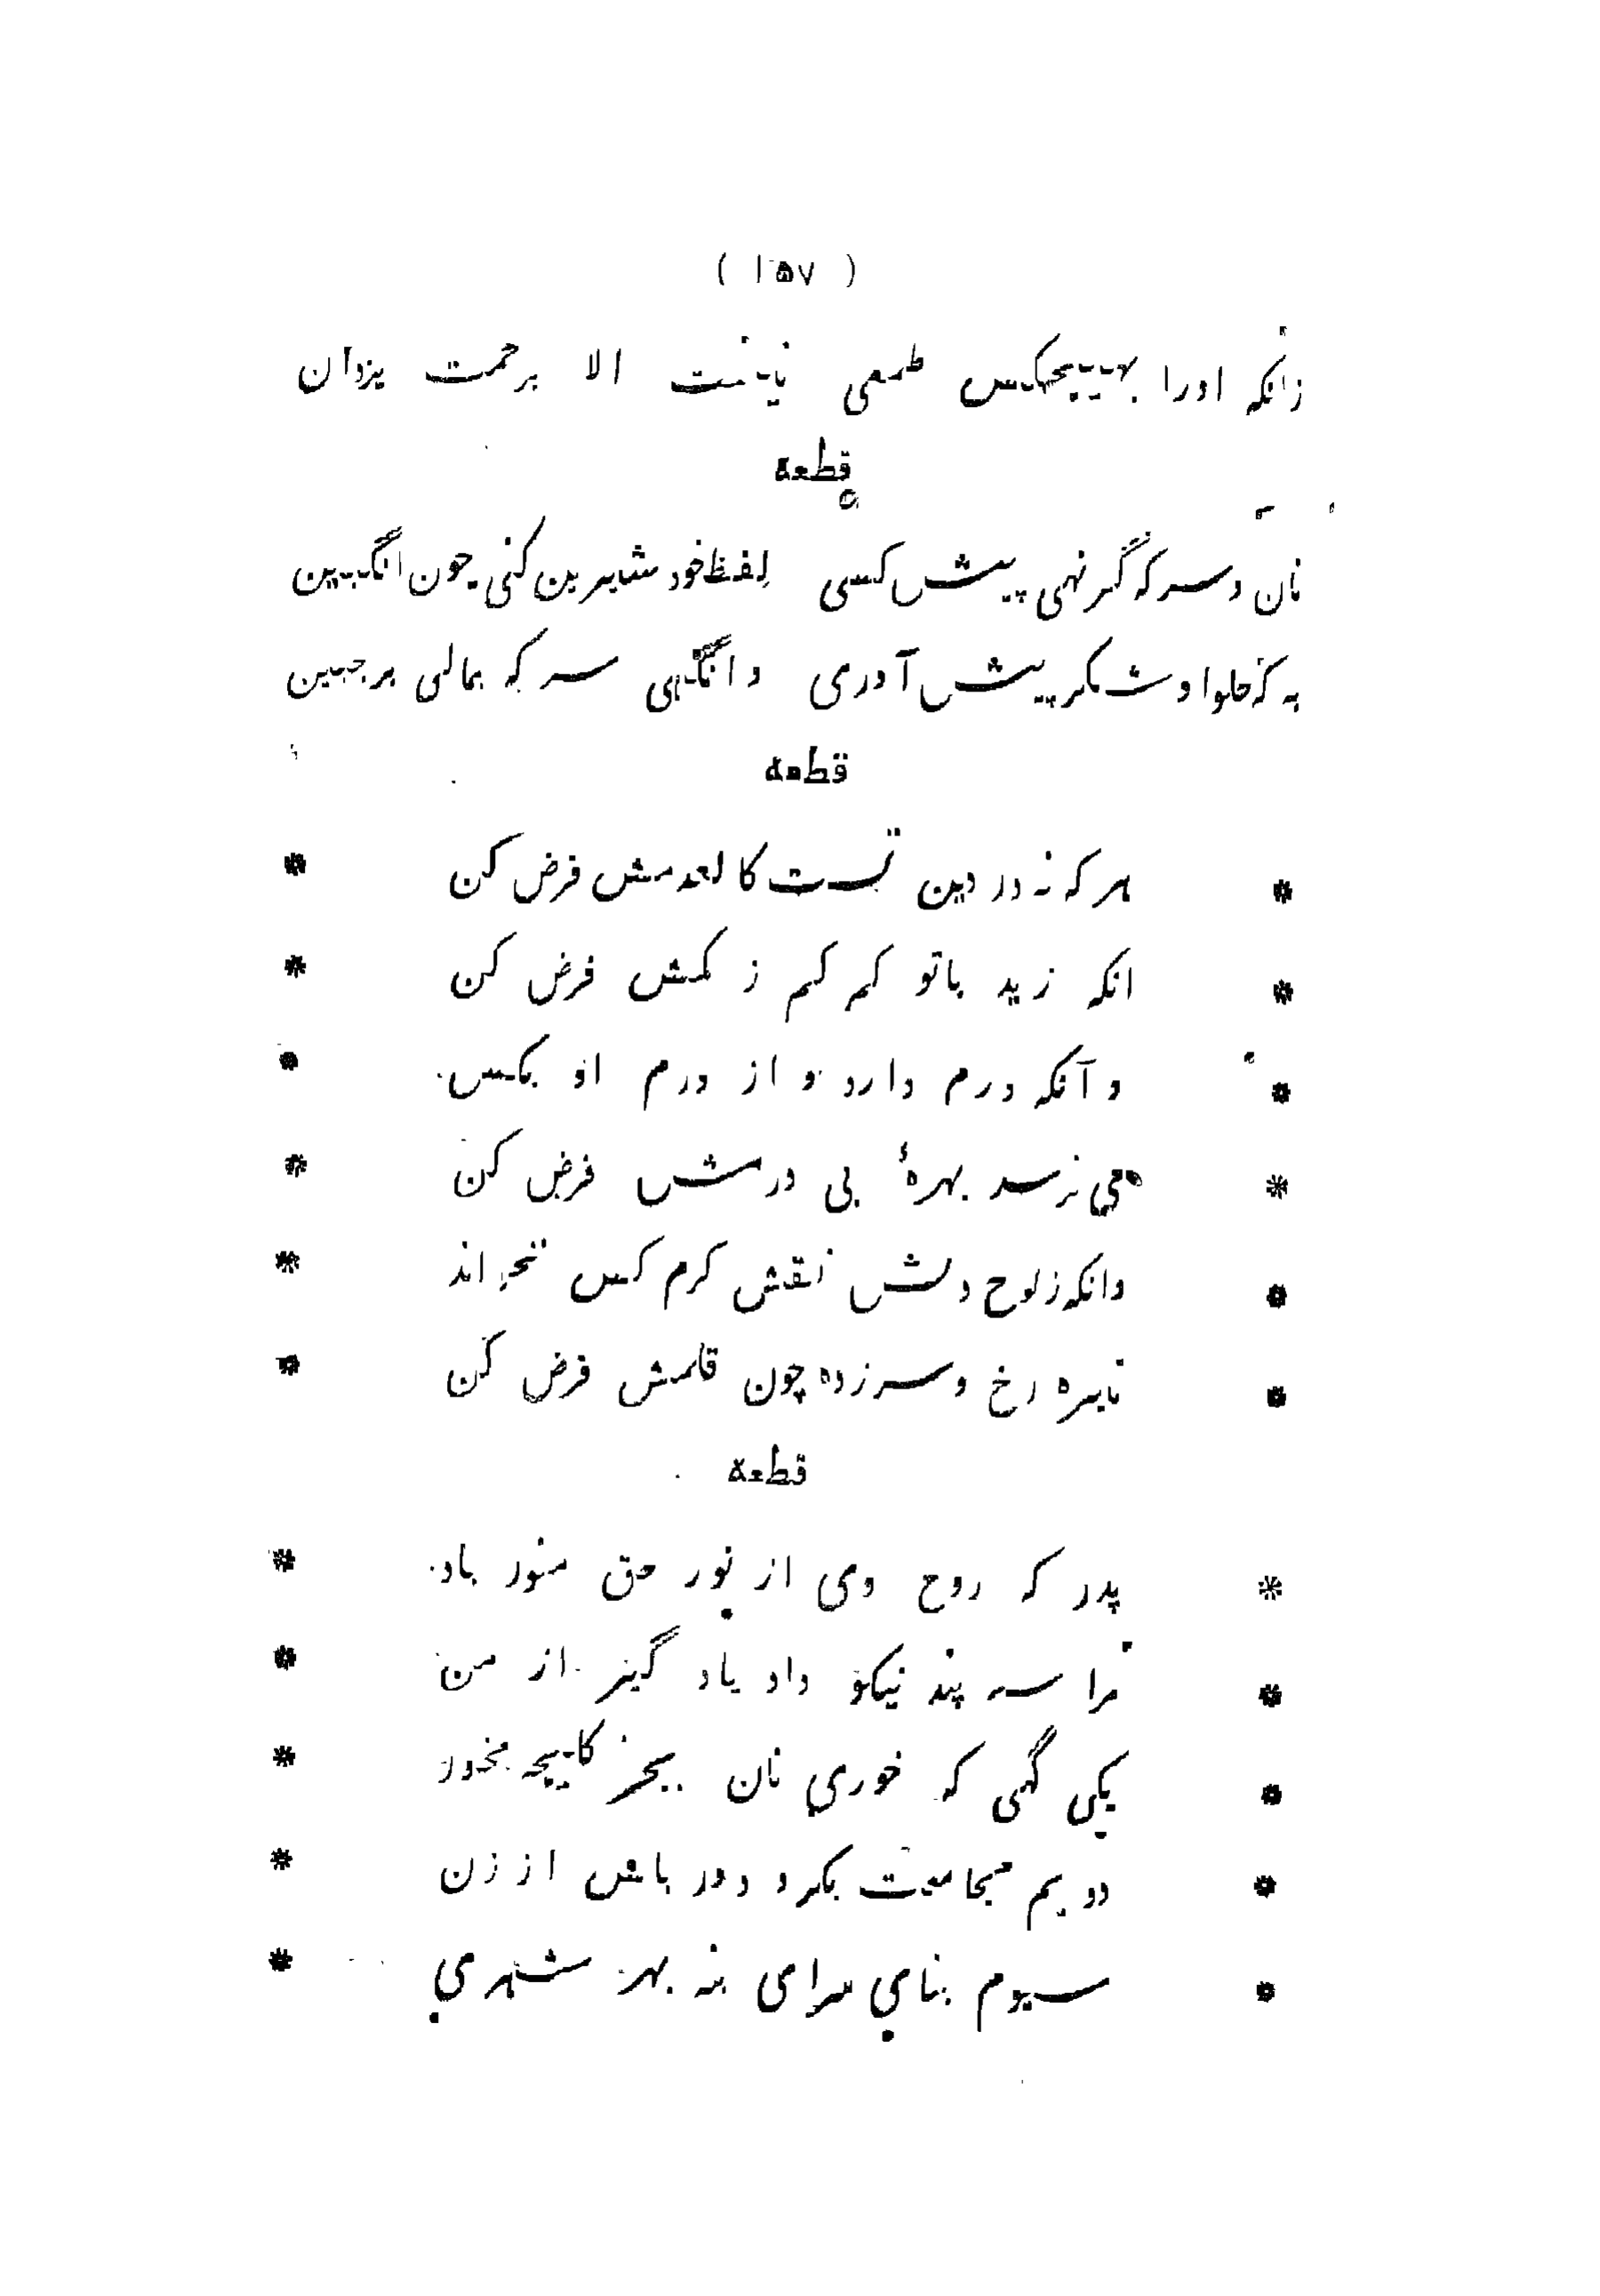 ( ۱۵۷ )
زانکه اورا بهییچکس طمعی نیست الا برحمت یزدان
قطعه
نان و سرکه گر نهی پیش کسی لفظ خود شیرین کنی چون انگبین
به کز حلوا و شکر پیش آوری وانگهی سرکه بمالی بر جبین
قطعه
* هر که نه در دین تست کالعدمش فرض کن *
* انکه زید باتو کم کم ز کمش فرض کن *
* و آنکه درم دارد و از درم او بکس *
* می نرسد بهرهٔ بی درمش فرض کن *
* وانکه ز لوح دلش نقش کرم کس نخواند *
* تیره رخ و سرزده چون قلمش فرض کن *
قطعه
* پدر که روح وی از نور حق منور باد *
* مرا سه پند نیکو داد یاد گیر از من *
* یکی گهی که خوري نان بجز کلیچه مخور *
* دویم مجامعت بکر و دور باش از زن *
* سیوم بنای سرای بنه بهر شهري *